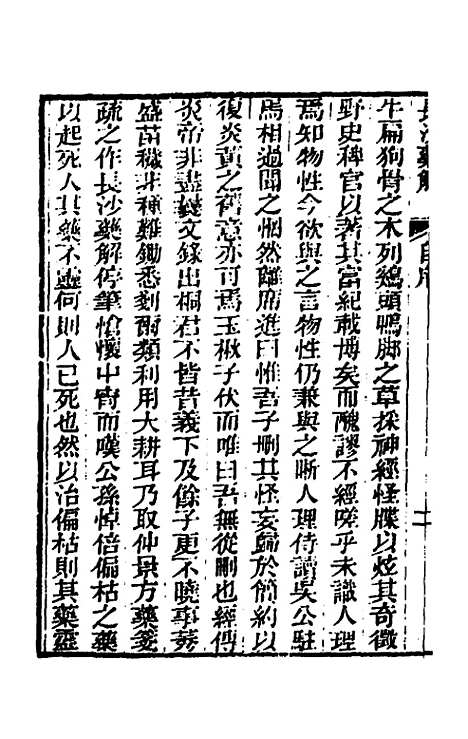 長沙藥解 自序 二
牛扁狗骨之木列鷄頭鴨脚之草採神經怪牒以炫其奇徵
野史稗官以著其富紀載博矣而醜謬不經嗟乎未識人理
焉知物性今欲與之言物性仍兼與之晰人理侍讀吳公駐
馬相過聞之惘然離席進曰惟吾子刪其怪妄歸於簡約以
復炎黃之舊意亦可焉玉楸子伏而唯曰吾無從刪也經傳
炎帝非盡文錄出桐君不皆昔義下及餘子更不曉事莠
盛苗穢非種難鋤悉剗爾類利用大耕耳乃取仲景方藥箋
疏之作長沙藥解停筆愴懷中宵而嘆公孫悼倍偏枯之藥
以起死人其藥不靈何則人已死也然以治偏枯則其藥靈